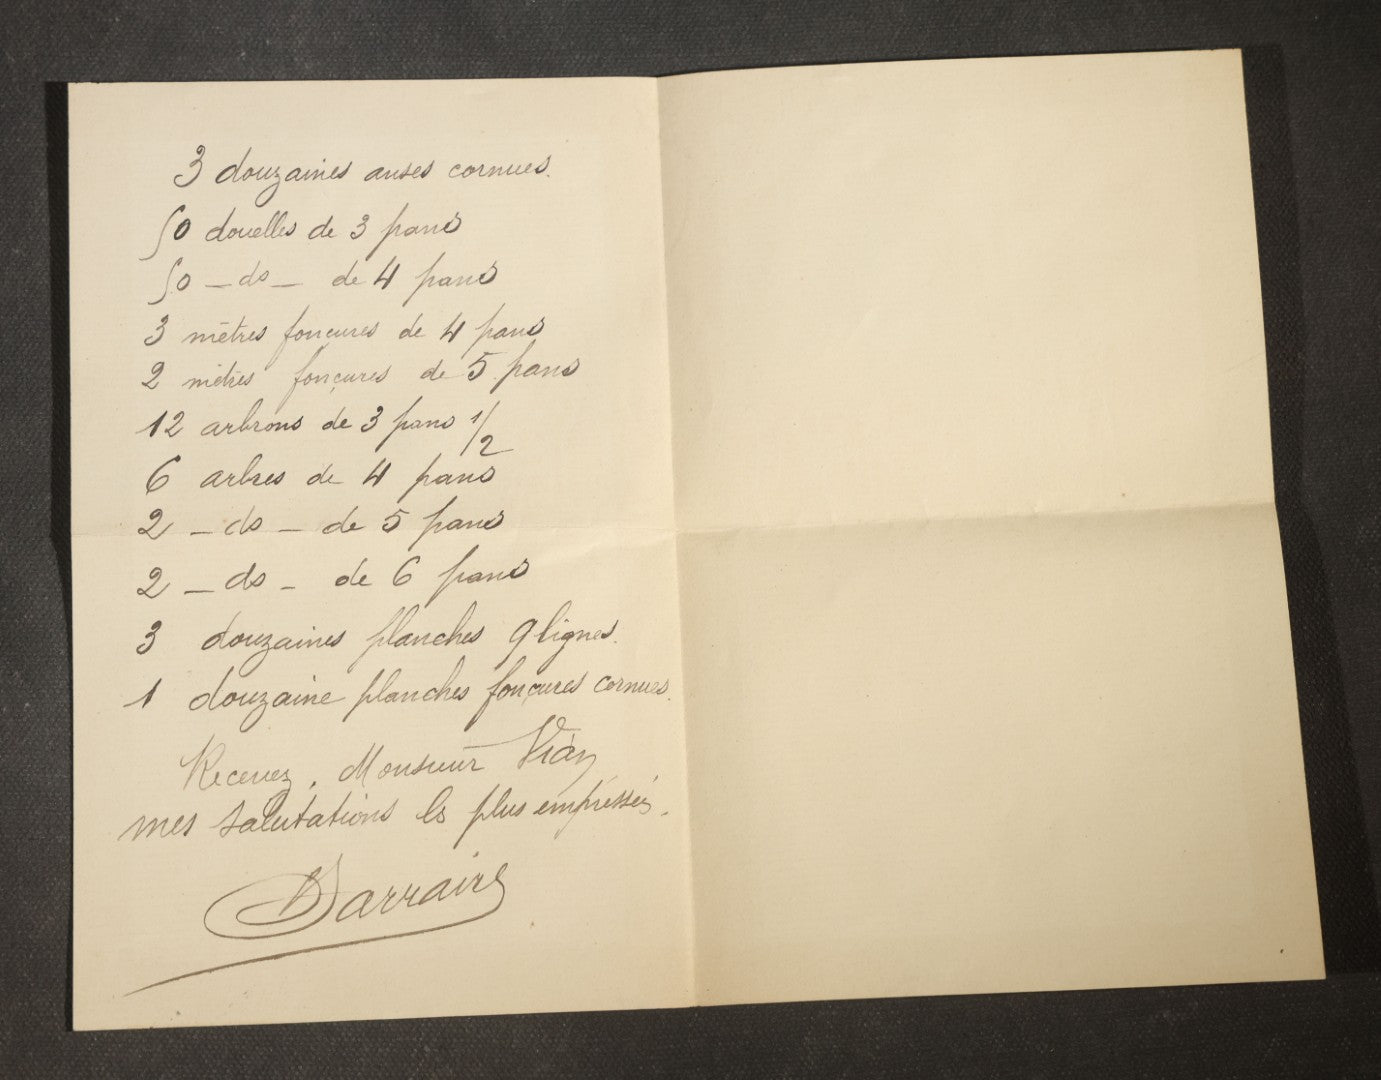 3 douzaines anses cornues.
50 douelles de 3 pans
50 - do - de 4 pans
3 mètres fonçures de 4 pans
2 mètres fonçures de 5 pans
12 arbrons de 3 pans 1/2
6 arbres de 4 pans
2 - do - de 5 pans
2 - do - de 6 pans
3 douzaines planches 9 lignes.
1 douzaine planches fonçures cornues.
Recevez, Monsieur
mes salutations les plus empressées.
Darraire